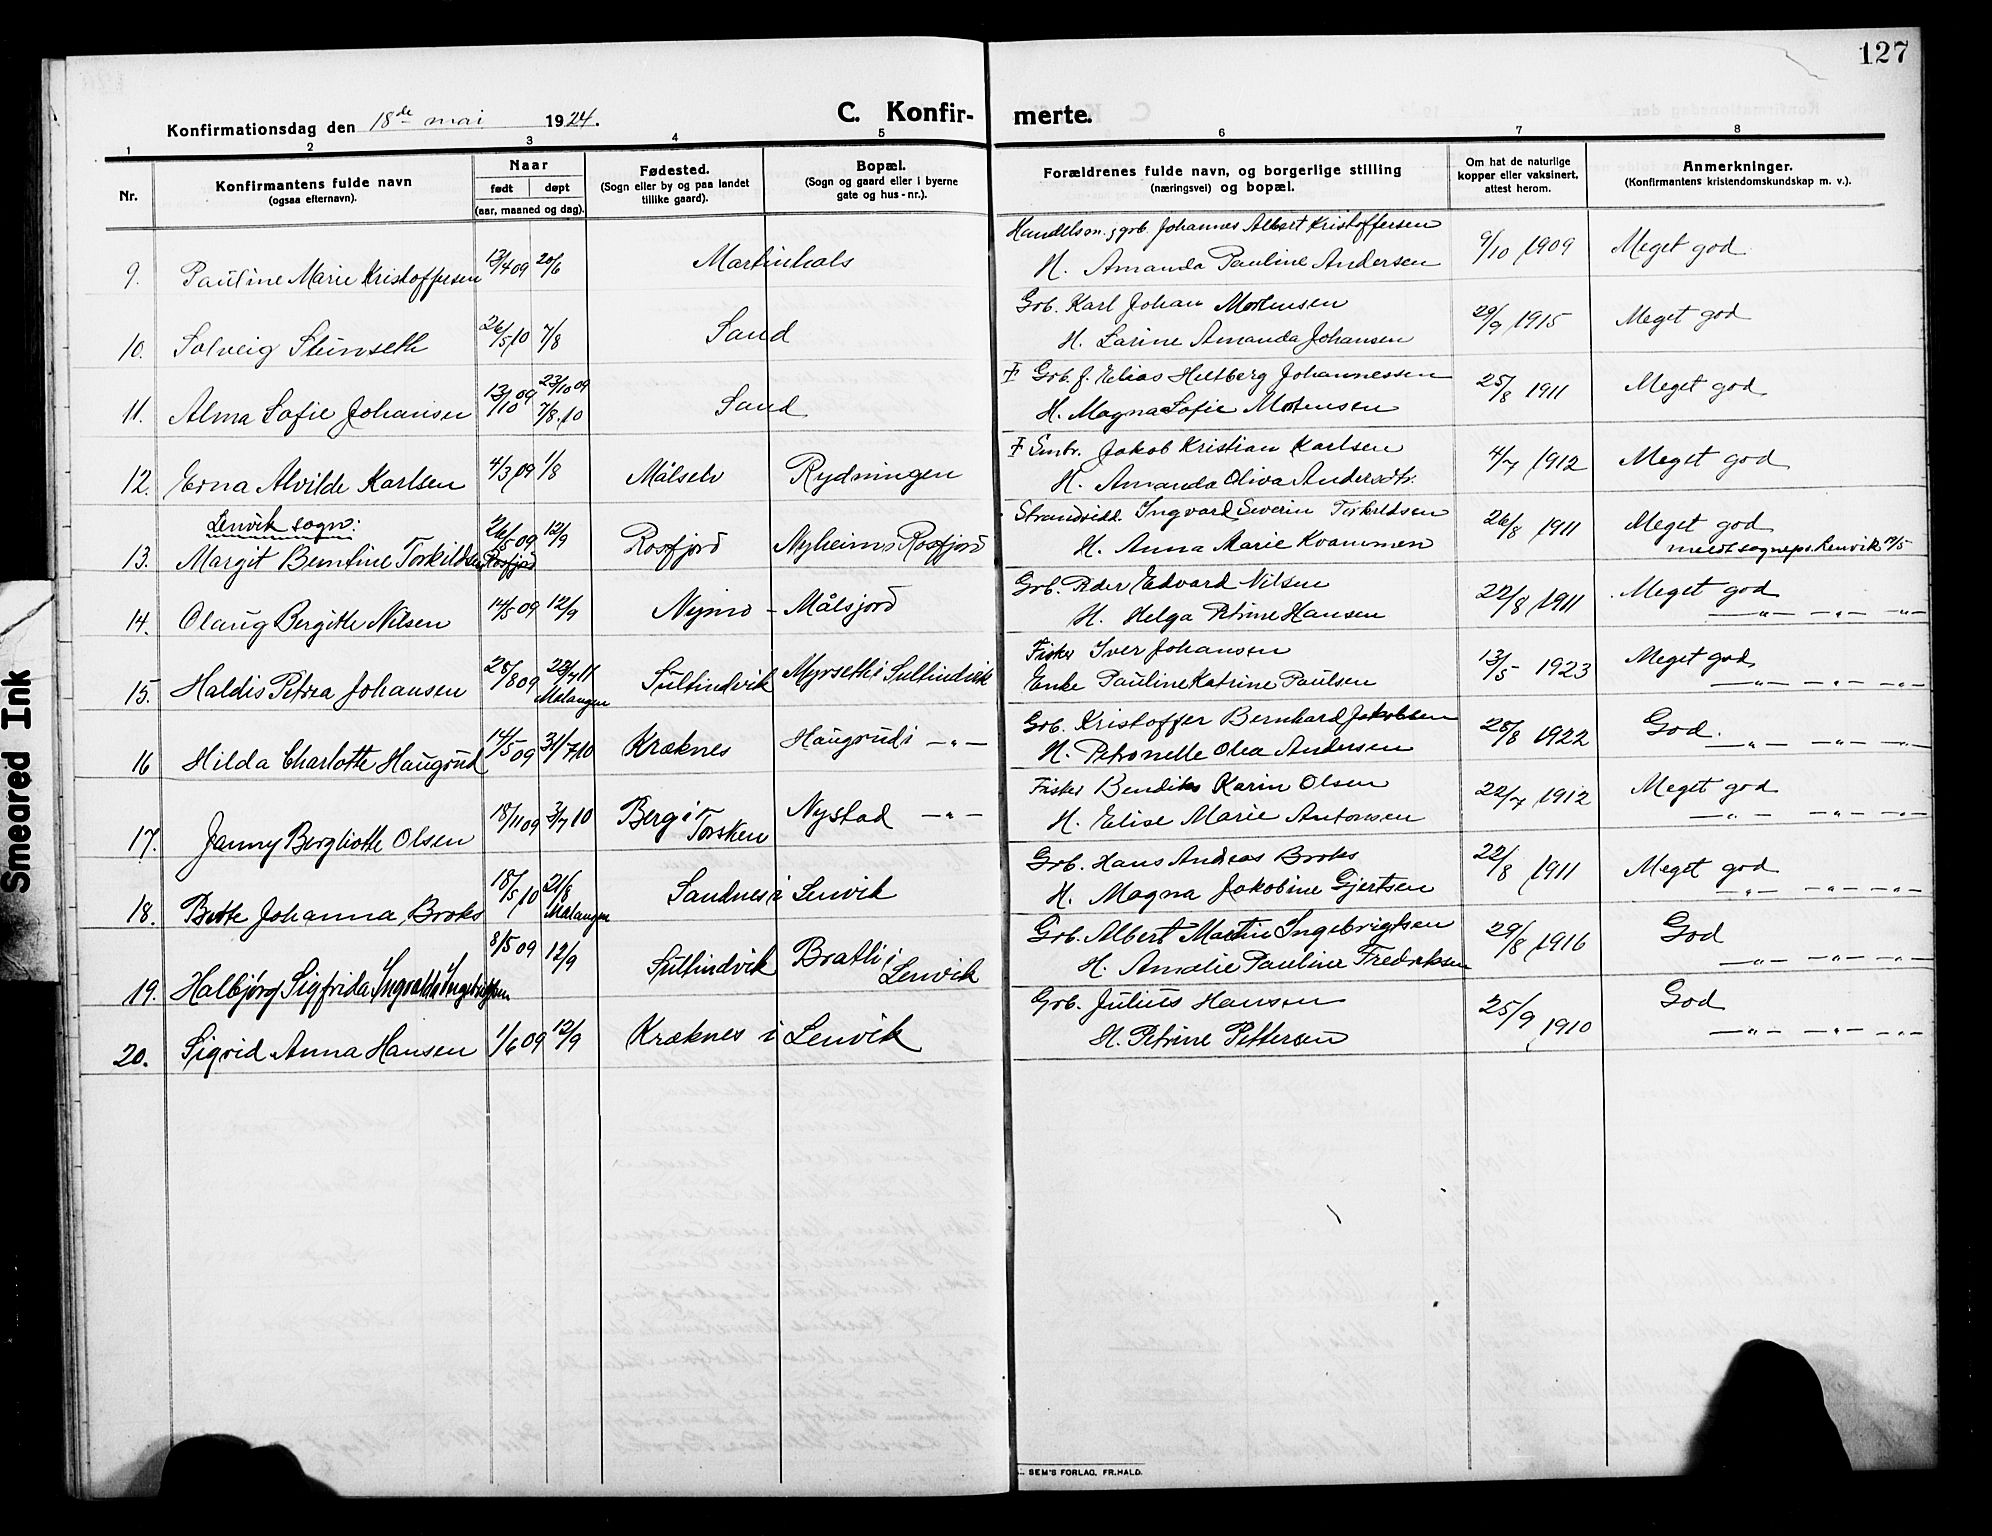 127
Konfirmationsdag den 18de mai 1924.
C. Konfir- merte.
1 2 3 4 5 6 7 8
Nr.
Konfirmantens fulde navn
(ogsaa efternavn).
Naar
født døpt
(aar, maaned og dag).
Fødested.
(Sogn eller by og paa landet
tillike gaard).
Bopæl.
(Sogn og gaard eller i byerne
gate og hus-nr.).
Forældrenes fulde navn, og borgerlige stilling
(næringsvei) og bopæl.
Om hat de naturlige
kopper eller vaksinert,
attest herom.
Anmerkninger.
(Konfirmantens kristendomskundskap m. v.).
Handelsm. & grb. Johannes Albert Kristoffersen
9. Pauline Marie Kristoffersen 13/4 09 20/6 Martinhals H. Amanda Pauline Andersen 9/10 1909 Meget god
Grb. Karl Johan Mortensen
10. Solveig Stenseth 26/5 10 7/8 Sand H. Larine Amanda Johansen 29/9 1915 Meget god
Grb. f. Elias Heltberg Johannessen
11. Alma Sofie Johansen 13/10 09 23/10 09 7/8 10 Sand H. Magna Sofie Mortensen 25/8 1911 Meget god
Smbr. Jakob Kristian Karlsen
12. Erna Alvilde Karlsen 4/3 09 1/8 Målselv Rydningen H. Amanda Oliva Andersdtr. 4/7 1912 Meget god
Lenvik sogn:
Strandsidd. Ingvard Severin Torkildsen
13. Margit Berntine Torkildsen 26/5 09 12/9 Rosfjord Rosfjord Nyheim i Rosfjord H. Anna Marie Kvammen 26/8 1911 Meget god
meldt sognepr. Lenvik 19/5
Grb. Peder Edvard Nilsen
14. Olaug Bergitte Nilsen 14/5 09 12/9 Nymo - Målsjord H. Helga Petrine Hansen 22/8 1911 Meget god
—"— —"— —"—
Fisker Iver Johansen
15. Haldis Petrea Johansen 28/8 09 23/7 11 Malangen Sultindvik Myrseth i Sultindvik Enke Pauline Katrine Paulsen 13/5 1923 Meget god
—"— —"— —"—
Grb. Kristoffer Bernhard Jakobsen
16 Hilda Charlotte Haugrud 14/5 09 31/7 10 Kræknes Haugrud i —"— H. Petronelle Olea Andersen 28/8 1922 God.
—"— —"— —"—
Fisker Bendiks Karin Olsen
17. Janny Bergliotte Olsen 18/11 09 31/7 10 Berg i Torsken Nystad —"— H. Elise Marie Antonsen 22/7 1912 Meget god
—"— —"— —"—
Grb. Hans Andreas Broks
18. Bette Johanna Broks 18/5 10 21/8 Malangen Sandnes i Lenvik H. Magna Jakobine Gjertsen 22/8 1911 Meget god
—"— —"— —"—
Grb. Albert Martin Ingebrigtsen
19. Halbjørg Sigfrida Ingvalda Ingebrigtsen 8/5 09 12/9 Sultindvik Bratli i Lenvik H. Amalie Pauline Fredriksen 29/8 1916 God
—"— —"— —"—
Grb. Julius Hansen
20. Sigrid Anna Hansen 1/6 09 12/9 Kræknes i Lenvik H. Petrine Pettersen 25/9 1910 God
—"— —"— —"—
SEM'S FORLAG, FR.HALD.
Smeared Ink